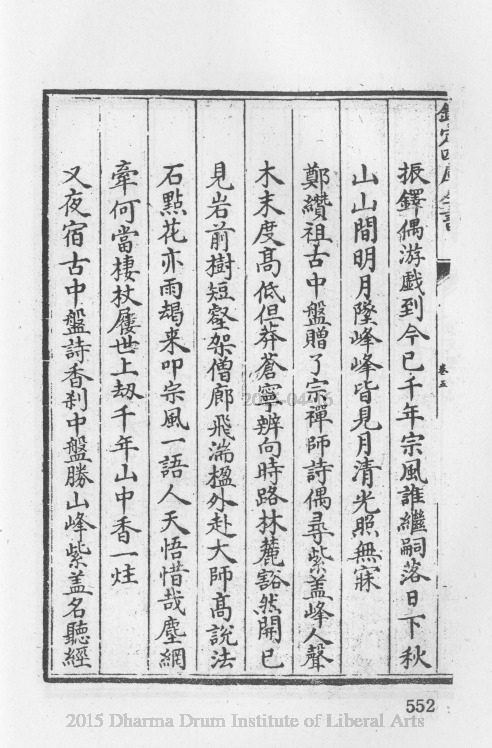 欽定四庫全書
卷五
振鐸偶游戲到今已千年宗風誰繼嗣落日下秋
山山間明月墜峰峰皆見月清光照無寐
鄭纘祖古中盤贈了宗禪師詩偶尋紫盖峰人聲
木末度髙低但莽蒼寧辨向時路林麓豁然開已
見岩前樹短壑架僧廊飛湍楹外赴大師髙說法
石點花亦雨朅来叩宗風一語人天悟惜哉塵網
牽何當棲杖屨世上刼千年山中香一炷
又夜宿古中盤詩香刹中盤勝山峰紫盖名聽經
552
2015 Dharma Drum Institute of Liberal Arts